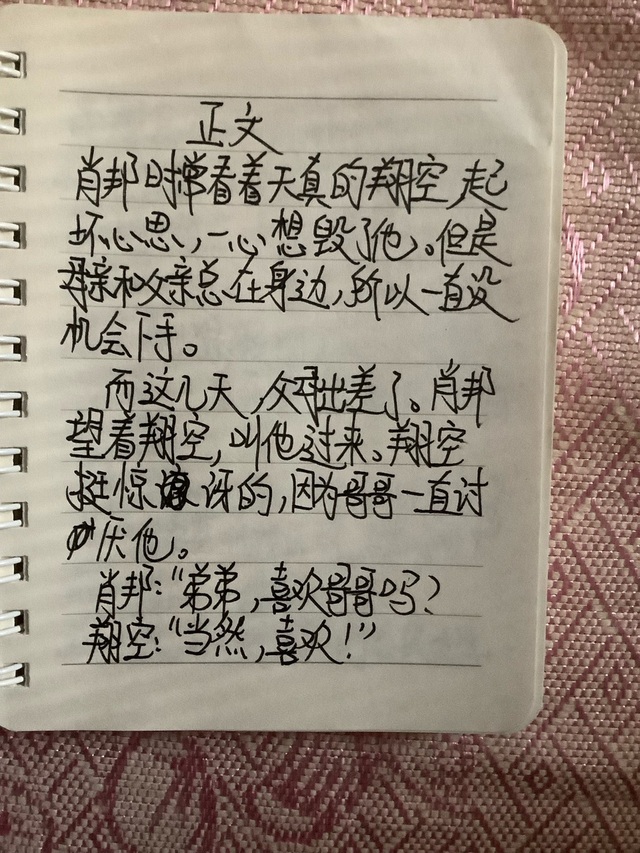 正文
肖邦时常看着天真的翔空,起
坏心思,一心想毁了他。但是
母亲和父亲总在身边,所以一直没
机会下手。
而这几天,父母出差了。肖邦
望着翔空,叫他过来。翔空
挺惊讶的,因为哥哥一直讨
厌他。
肖邦:“弟弟,喜欢哥哥吗?
翔空:“当然,喜欢!”